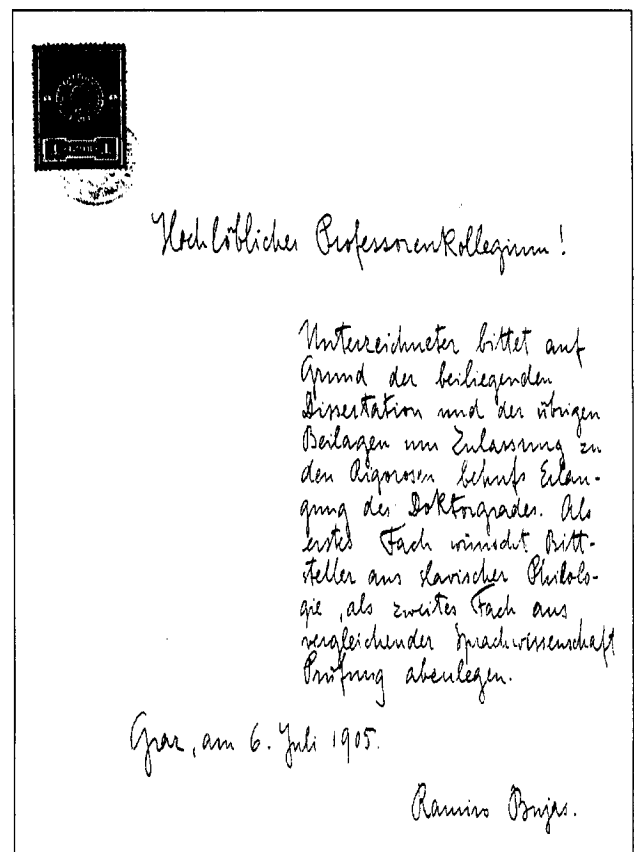 Hochlöbliches Professorenkollegium!
Unterzeichneter bittet auf
Grund der beiliegenden
Dissertation und der übrigen
Beilagen um Zulassung zu
den Rigorosen behufs Erlan-
gung des Doktorgrades. Als
erstes Fach wünscht Bitt-
steller aus slavischer Philolo-
gie, als zweites Fach aus
vergleichender Sprachwissenschaft
Prüfung abzulegen.
Graz, am 6. Juli 1905.
Ramiro Bujas.